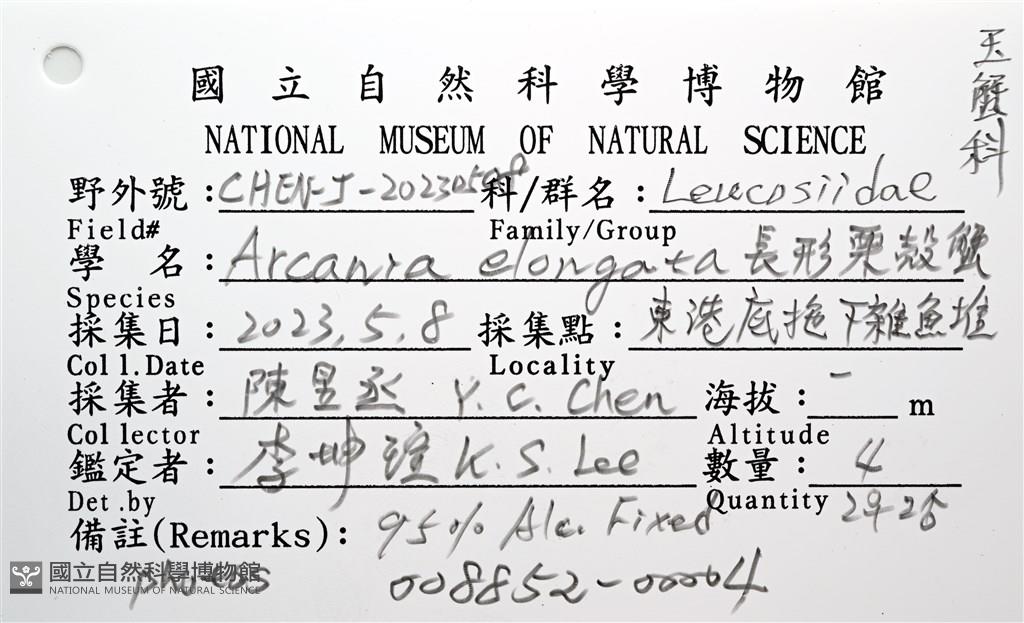 玉蟹科
國立自然科學博物館
NATIONAL MUSEUM OF NATURAL SCIENCE
野外號：CHEN-J-20230508 科/群名：Leucosiidae
Field# Family/Group
學 名：Arcania elongata 長形栗殼蟹
Species
採集日：2023.5.8 採集點：東港底拖下雜魚堆
Coll.Date Locality
採集者：陳昱丞 Y. C. Chen 海拔：- m
Collector Altitude
鑑定者：李坤瑄 K. S. Lee 數量：4
Det.by Quantity 24-25
備註(Remarks)：95% Alc. Fixed
photos 008852-00004
國立自然科學博物館
NATIONAL MUSEUM OF NATURAL SCIENCE